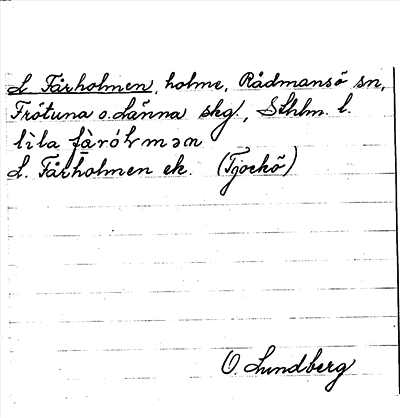 L. Fårholmen, holme, Rådmansö sn,
Frötuna o. Länna skg., Sthlm. l.
lila fàrólmən
L. Fårholmen ek. (Tjockö)
O. Lundberg